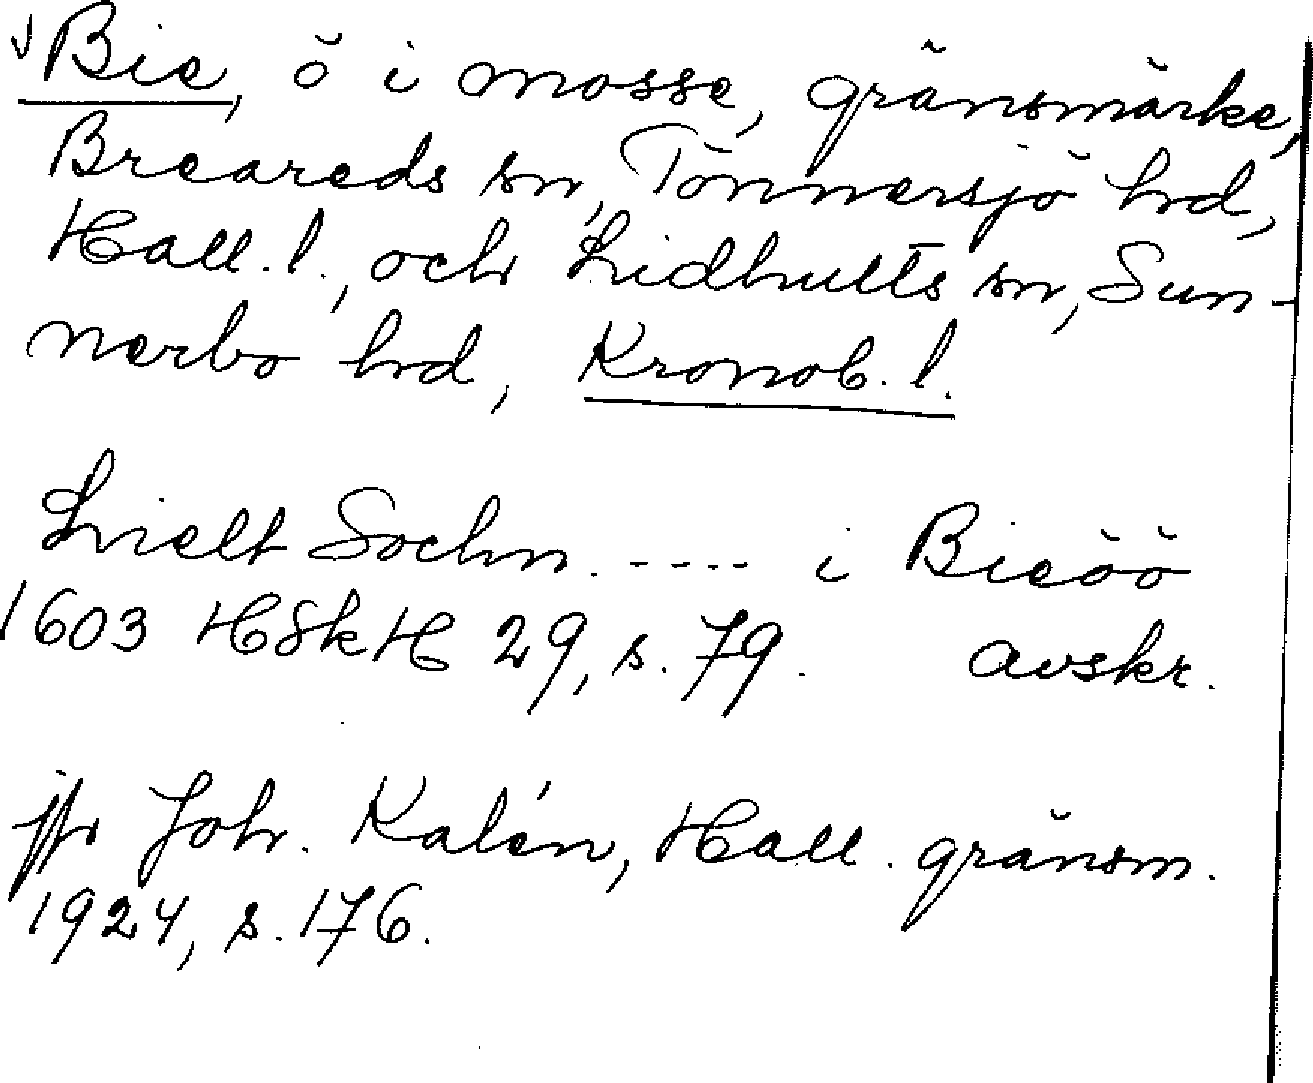 √Bie, ö i mosse, gränsmärke,
Breareds sn, Tönnersjö hd,
Hall. l., och Lidhults sn, Sun-
nerbo hd, Kronob. l.
Lielt Sochn. ---- i Bieöö
1603 HSkH 29, s. 79. avskr.
jfr Joh. Kalén, Hall. gränsm.
1924, s. 176.